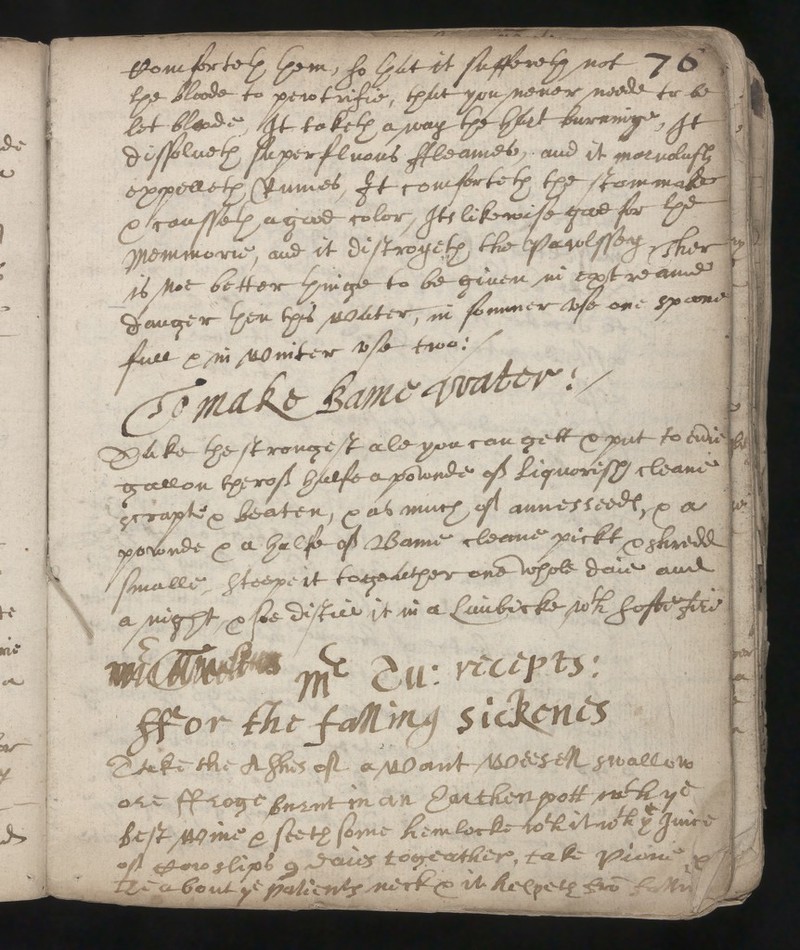 Comforteth them, so that it suffereth not 76
the bloode to peutrifie, that you never neede to be
let bloode, It taketh away the hart burninge, It
dissolveth superfluous ffleames, and it
expelleth Rumes, It comforteth the stommake
& causseth a good color, Its likewise good for the
Memmorie, and it distroyeth the Paulssey Ther
is noe better thinge to be given in extreame
danger then this Water, in sommer use one spoone
full & in Winter use two:/
To make Bame Water:/
Take the strongest ale you can gett & put to
gallon therof halfe a pownde of Liquorish cleane
scrapte & beaten, & as much of annesseeds, & a
pownde & a halfe of Bame cleane pickt & shredd
smalle, steepe it togeather one whole daie and
a night, & soe distill it in a Limbicke wth softe fire
Mr Tu: recepts:
ffor the falling sickenes
Take the Ashes of a Want Weesell swallow
ore ffroge burnt in an Earthen pott wth ye
best Wine & seeth some hemlocke wth it wth ye Juice
of Cowslips 9 daies togeather, take Pionie &
tie about ye patients neck & it helpeth